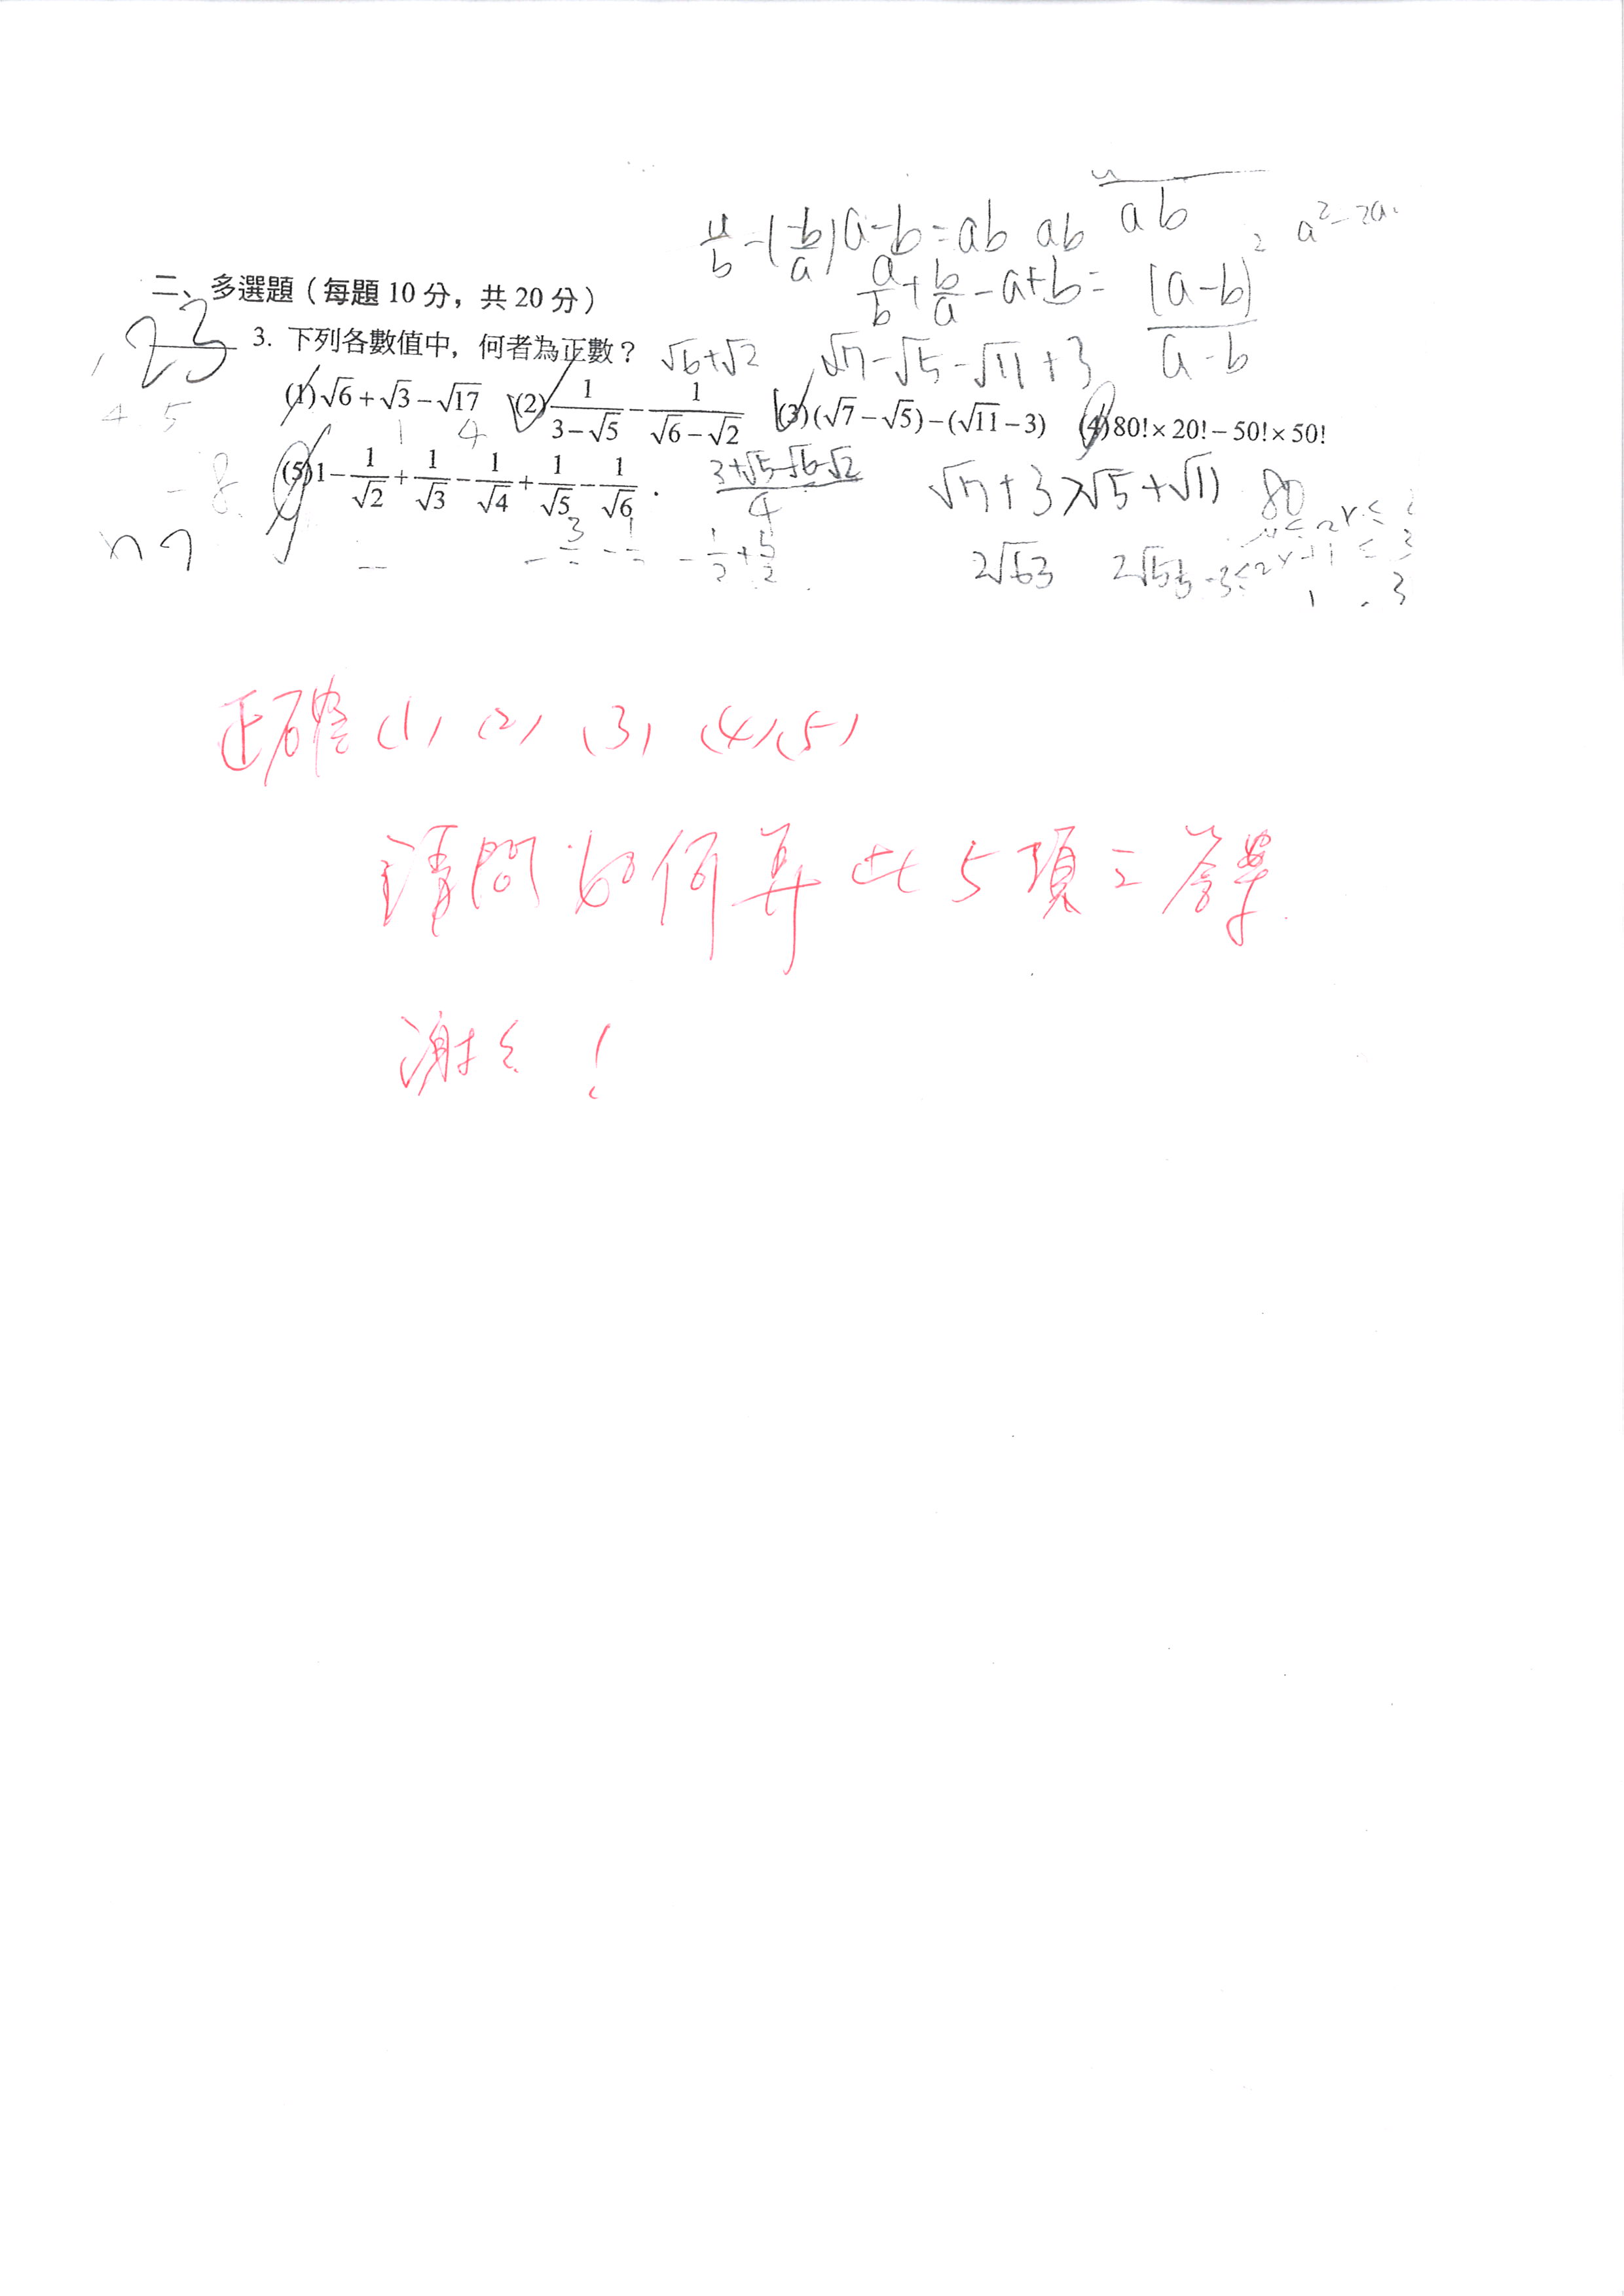 ab
a²-2a
(-b/a) a-b=ab ab
a/b+b/a-a+b= (a-b)²/a-b
二、多選題(每題10分,共20分)
23
3. 下列各數值中,何者為正數? √6+√2 √7-√5-√11+3
(1)√6+√3-√17 (2)1/(3-√5)-1/(√6-√2) (3)(√7-√5)-(√11-3) (4)80!×20!-50!×50!
4 5 1 4
(5)1-1/√2+1/√3-1/√4+1/√5-1/√6. (3+√5-√6-√2)/4 √7+3>√5+√11 80
-8
2√63 2√55
正確(1)(2)(3)(4)(5)
請問如何算此5項之答案
謝々!